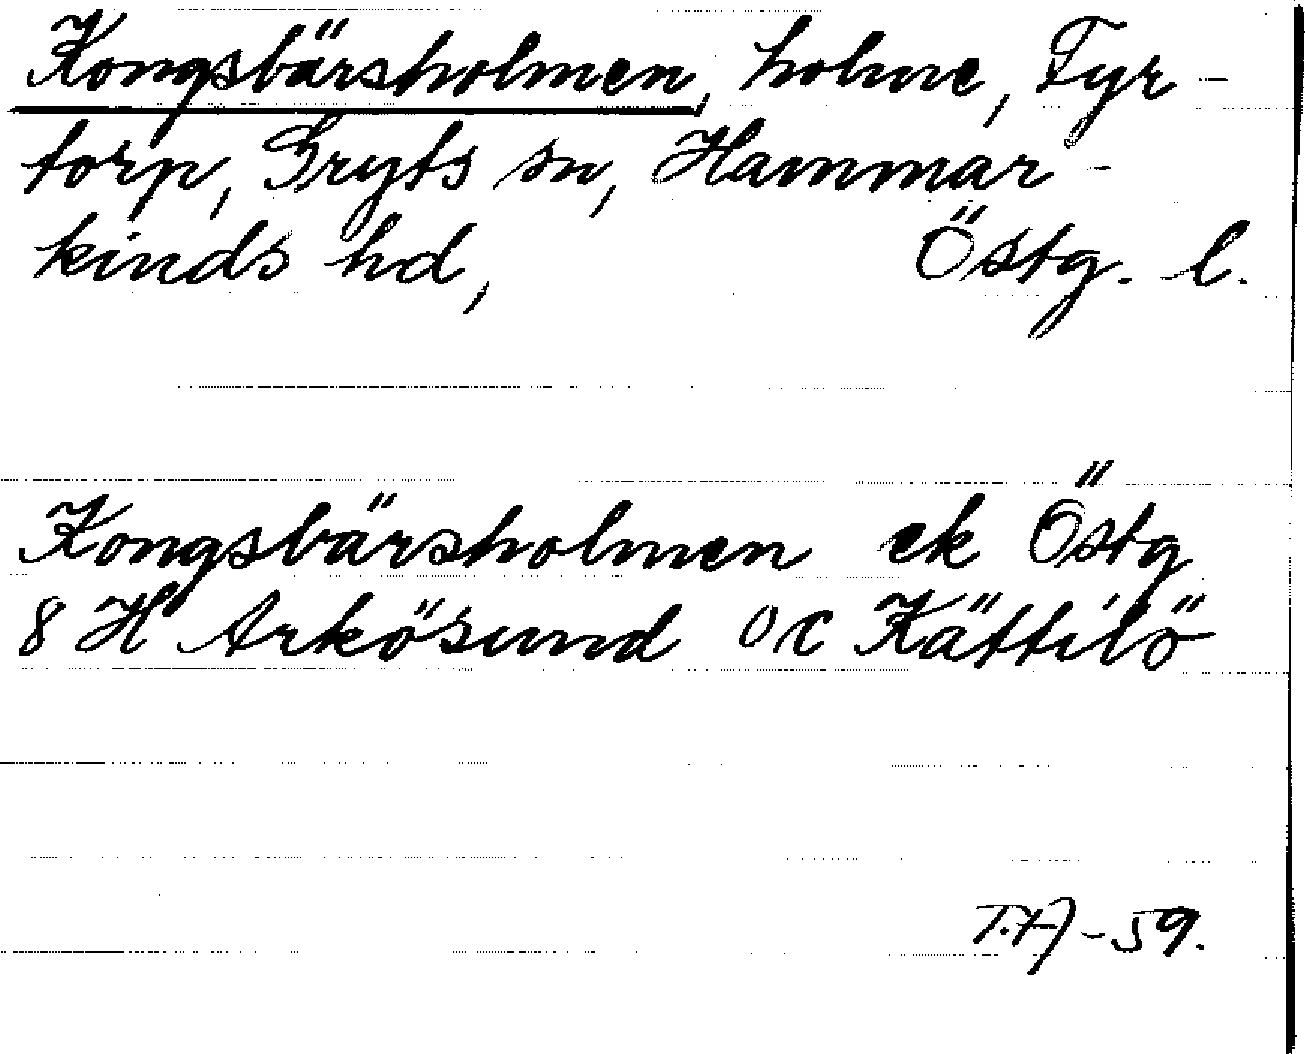 Kongsbärsholmen, holme, Fyr-
torp, Gryts sn, Hammar-
kinds hd, Östg. l.
Kongsbärsholmen ek Östg
8 H Arkösund 0c Kättilö
T.A-59.